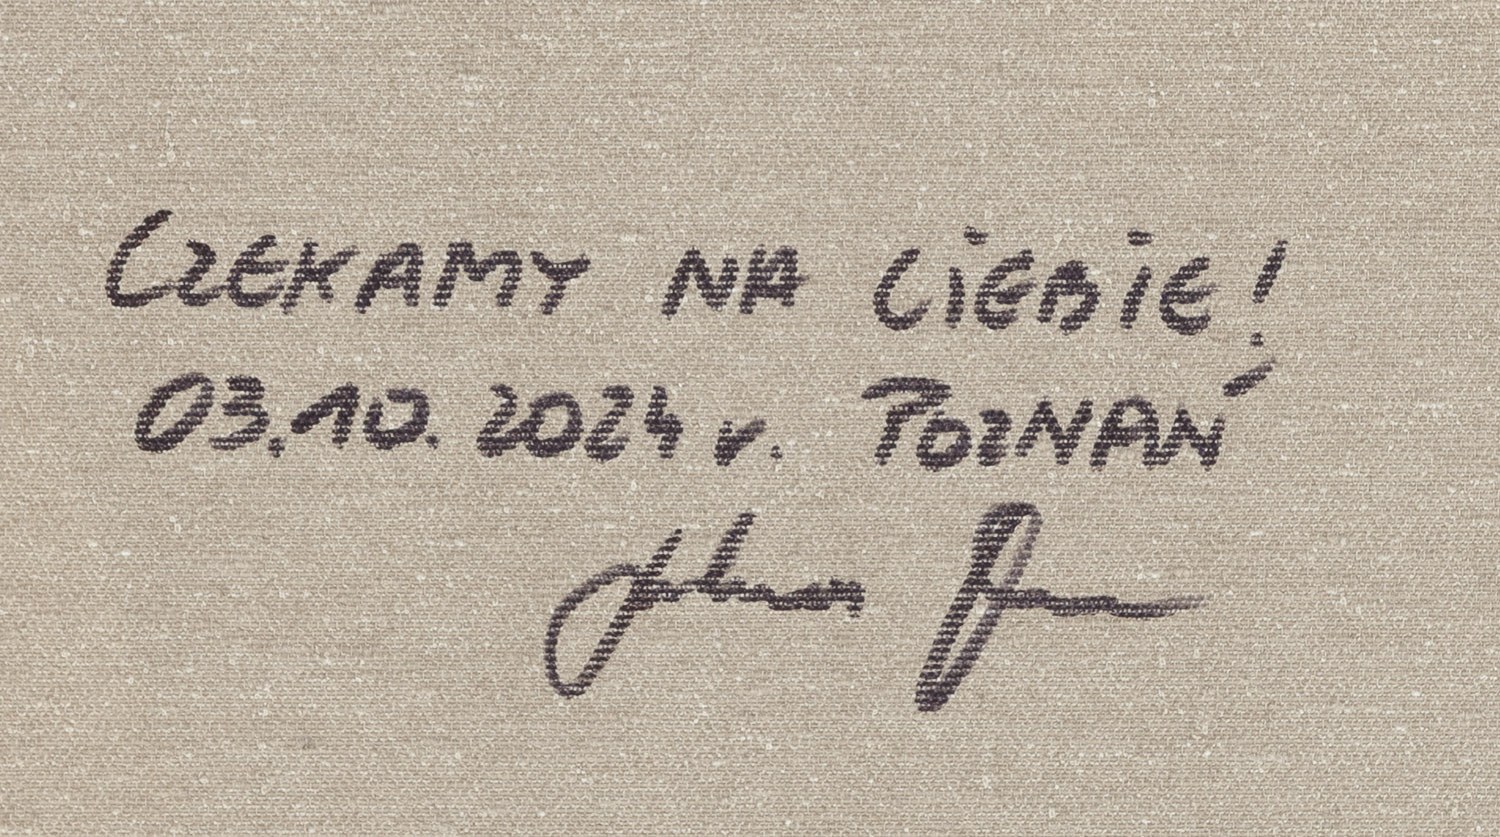 CZEKAMY NA CIEBIE!
03.10.2024 r. POZNAŃ